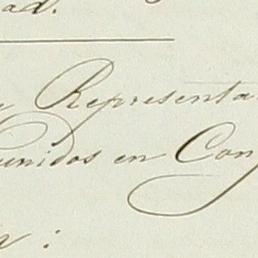 ad.
Representa
unidos en Con
: